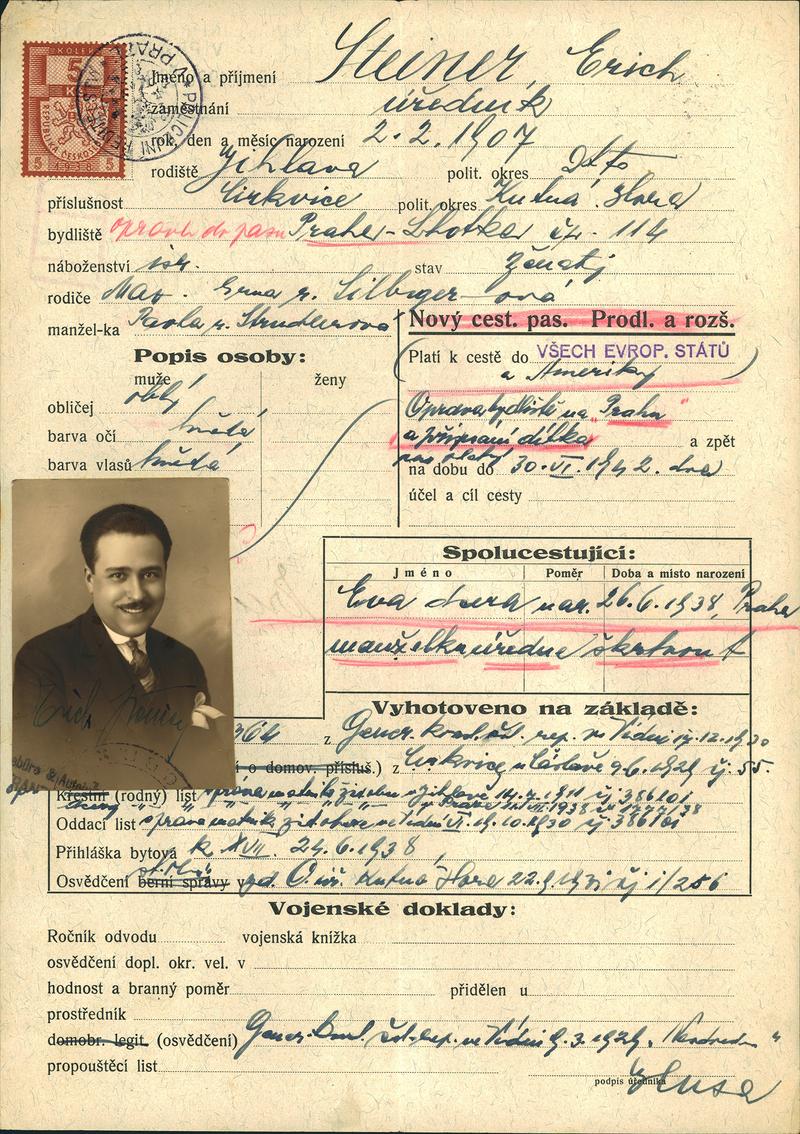 KOLEK
5
Kč
REPUBLIKA ČESKOSLOV
5 1938 5
Jméno a příjmení Steiner, Erich
zaměstnání úředník
rok, den a měsíc narození 2. 2. 1907
rodiště Jihlava polit. okres dtto
příslušnost Cirkvice polit. okres Kutná Hora
bydliště oprava do pasu Praha-Lhotka čp. 114
náboženství isr. stav ženatý
rodiče Max. Erna r. Silbiger-ová
manžel-ka Paola r. Strudlerova
Nový cest. pas. Prodl. a rozš.
Popis osoby:
muže ženy
obličej oblý
barva očí hnědá
barva vlasů hnědá
Platí k cestě do VŠECH EVROP. STÁTŮ
a Ameriky
Oprava bydliště na "Praha"
a připsání dítka a zpět
na dobu do 30. VI. 1942. dva
účel a cíl cesty
Spolucestující:
Jméno Poměr Doba a místo narození
Eva dcera nar. 26.6.1938, Praha
manželku úředně škrtnout
Vyhotoveno na základě:
364 z Gener. konsul. čsl. rep. ve Vídni 17.12.1930
i o domov. přísluš.) z Cirkvice u Čáslavě 9.6.1929 čj. 55.
Křestní (rodný) list správa matrik žid. obce v Jihlavě 14.7.1911 čj 386101
Oddací list správa matrik žid. obce ve Vídni VI. 19.10.1930 čj 386101
Přihláška bytová k XVII. 24.6.1938,
Osvědčení berní správy v Kutná Hora 22.9.1931 čj 1/256
Vojenské doklady:
Ročník odvodu vojenská knížka
osvědčení dopl. okr. vel. v
hodnost a branný poměr přidělen u
prostředník
domobr. legit. (osvědčení) Gener. konsul. čsl. rep. ve Vídni 9.3.1929
propouštěcí list
podpis úředníka